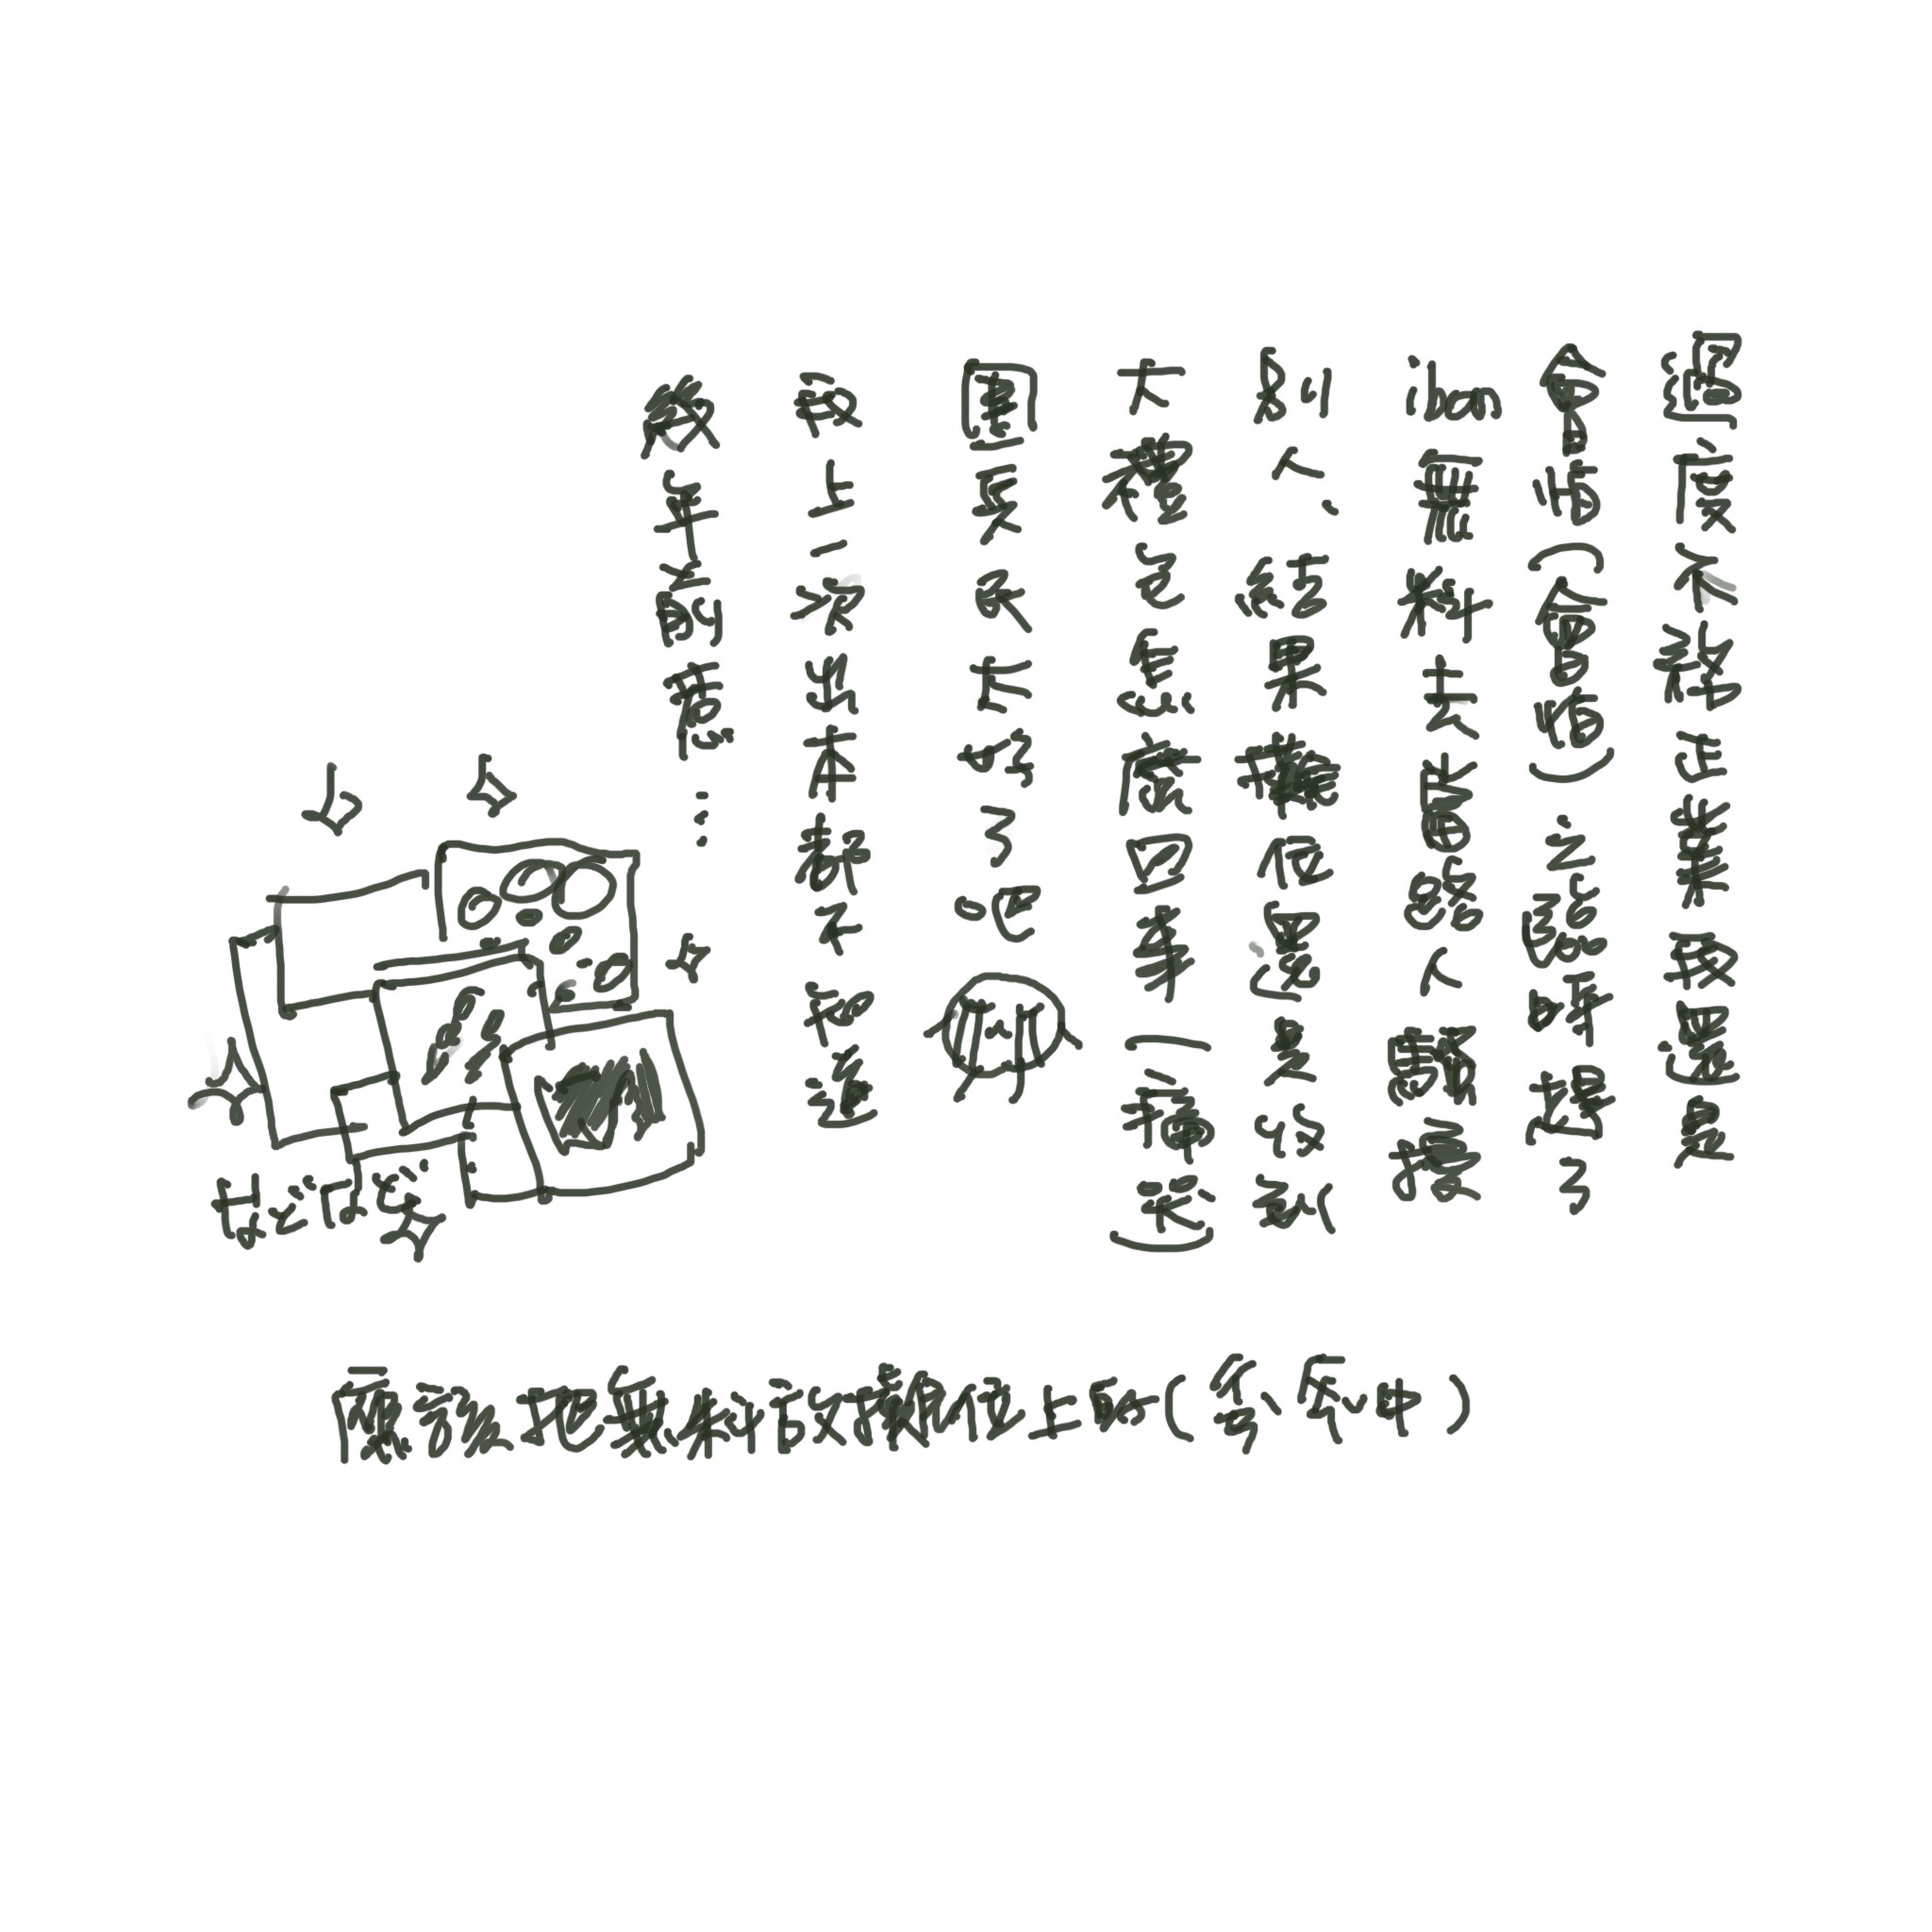 過度不務正業我還是
會怕(會怕)之臨時趕了
ibon無料去當路人騷擾
別人、結果攤位還是收到
大禮包怎麼回事(痛哭)
團長民太好了吧
我上一次出本都不知道
幾年前惹……
應該把無料放攤位上的(中)